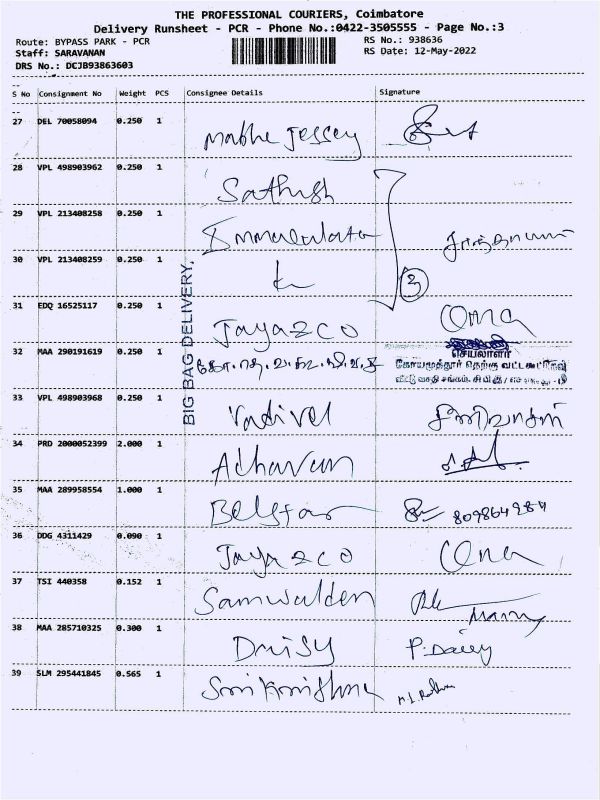 THE PROFESSIONAL COURIERS, Coimbatore
Delivery Runsheet - PCR - Phone No.:0422-3505555 - Page No.:3
Route: BYPASS PARK - PCR RS No.: 938636
Staff: SARAVANAN RS Date: 12-May-2022
DRS No.: DCJB93863603
S No Consignment No Weight PCS Consignee Details Signature
27 DEL 70058094 0.250 1 Jessey
28 VPL 498903962 0.250 1 Sathish
29 VPL 213408258 0.250 1 Immaculata
30 VPL 213408259 0.250 1 3
BIG BAG DELIVERY,
31 EDQ 16525117 0.250 1 Jayazco
32 MAA 290191619 0.250 1 செயலாளர்
கோயமுத்தூர் தெற்கு வட்ட கூட்டுறவு
வீட்டு வசதி சங்கம்.
33 VPL 498903968 0.250 1 Vadivel சீனிவாசன்
34 PRD 2000052399 2.000 1 Adhavan
35 MAA 289958554 1.000 1 Belstar 809864984
36 DDG 4311429 0.090 1 Jayazco
37 TSI 440358 0.152 1 Samwulden
38 MAA 285710325 0.300 1 Daisy P. Daisy
39 SLM 295441845 0.565 1 Srikrishna